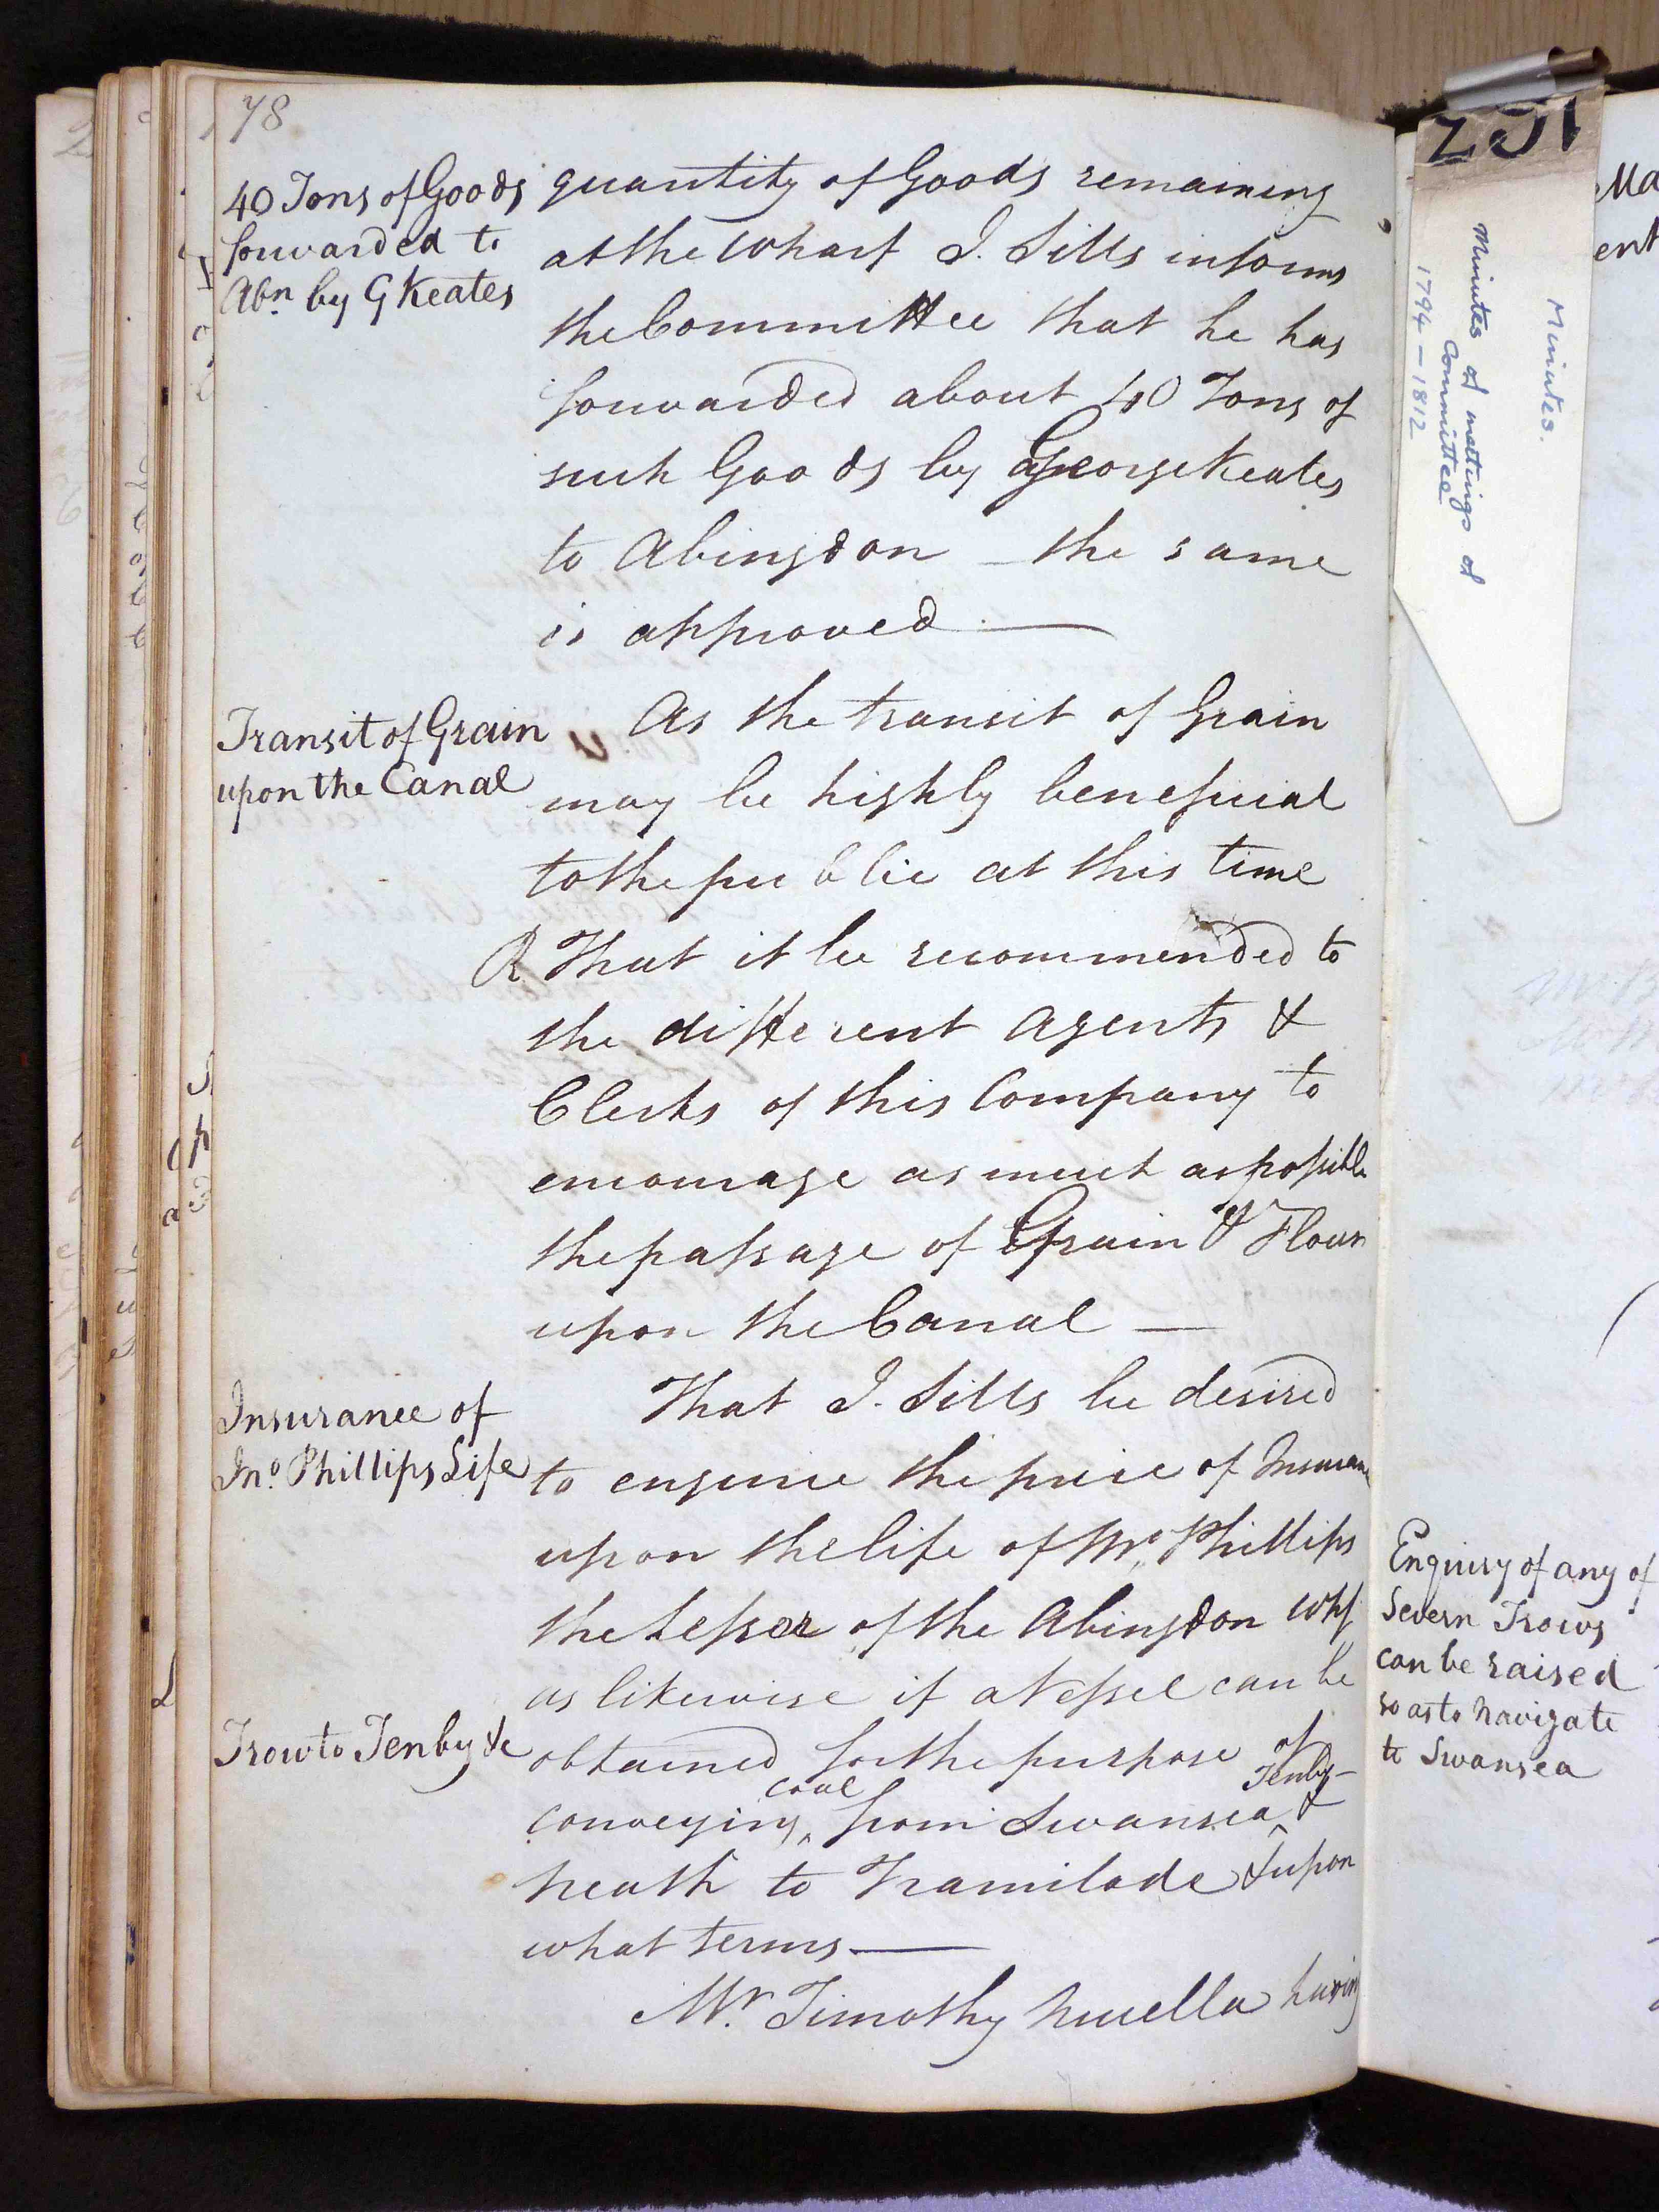 78
40 Tons of Goods
forwarded to
Abn. by G Keates
quantity of Goods remaining
at the Wharf J. Sills informs
the Committee that he has
forwarded about 40 Tons of
such Goods by George Keates
to Abingdon – the same
is approved. —
Transit of Grain
upon the Canal
As the transit of Grain
may be highly beneficial
to the public at this time
R That it be recommended to
the different Agents &
Clerks of this Company to
encourage as much as possible
the passage of Grain & Flour
upon the Canal —
Insurance of
Jno. Phillips Life
That J. Sills be desired
to enquire the price of Insurance
upon the life of Mr. Phillips
the Lessor of the Abingdon Whf
as likewise if a Vessel can be
Trow to Tenby &c
obtained for the purpose of
conveying ^ coal from Swansea ^ Tenby – &
Neath to Framilode & upon
what terms —
Mr. Timothy having
251
Minutes.
Minutes of meetings of
Committee
1794 – 1812
Ma
ent
Enquiry of any of
Severn Trows
can be raised
so as to navigate
to Swansea